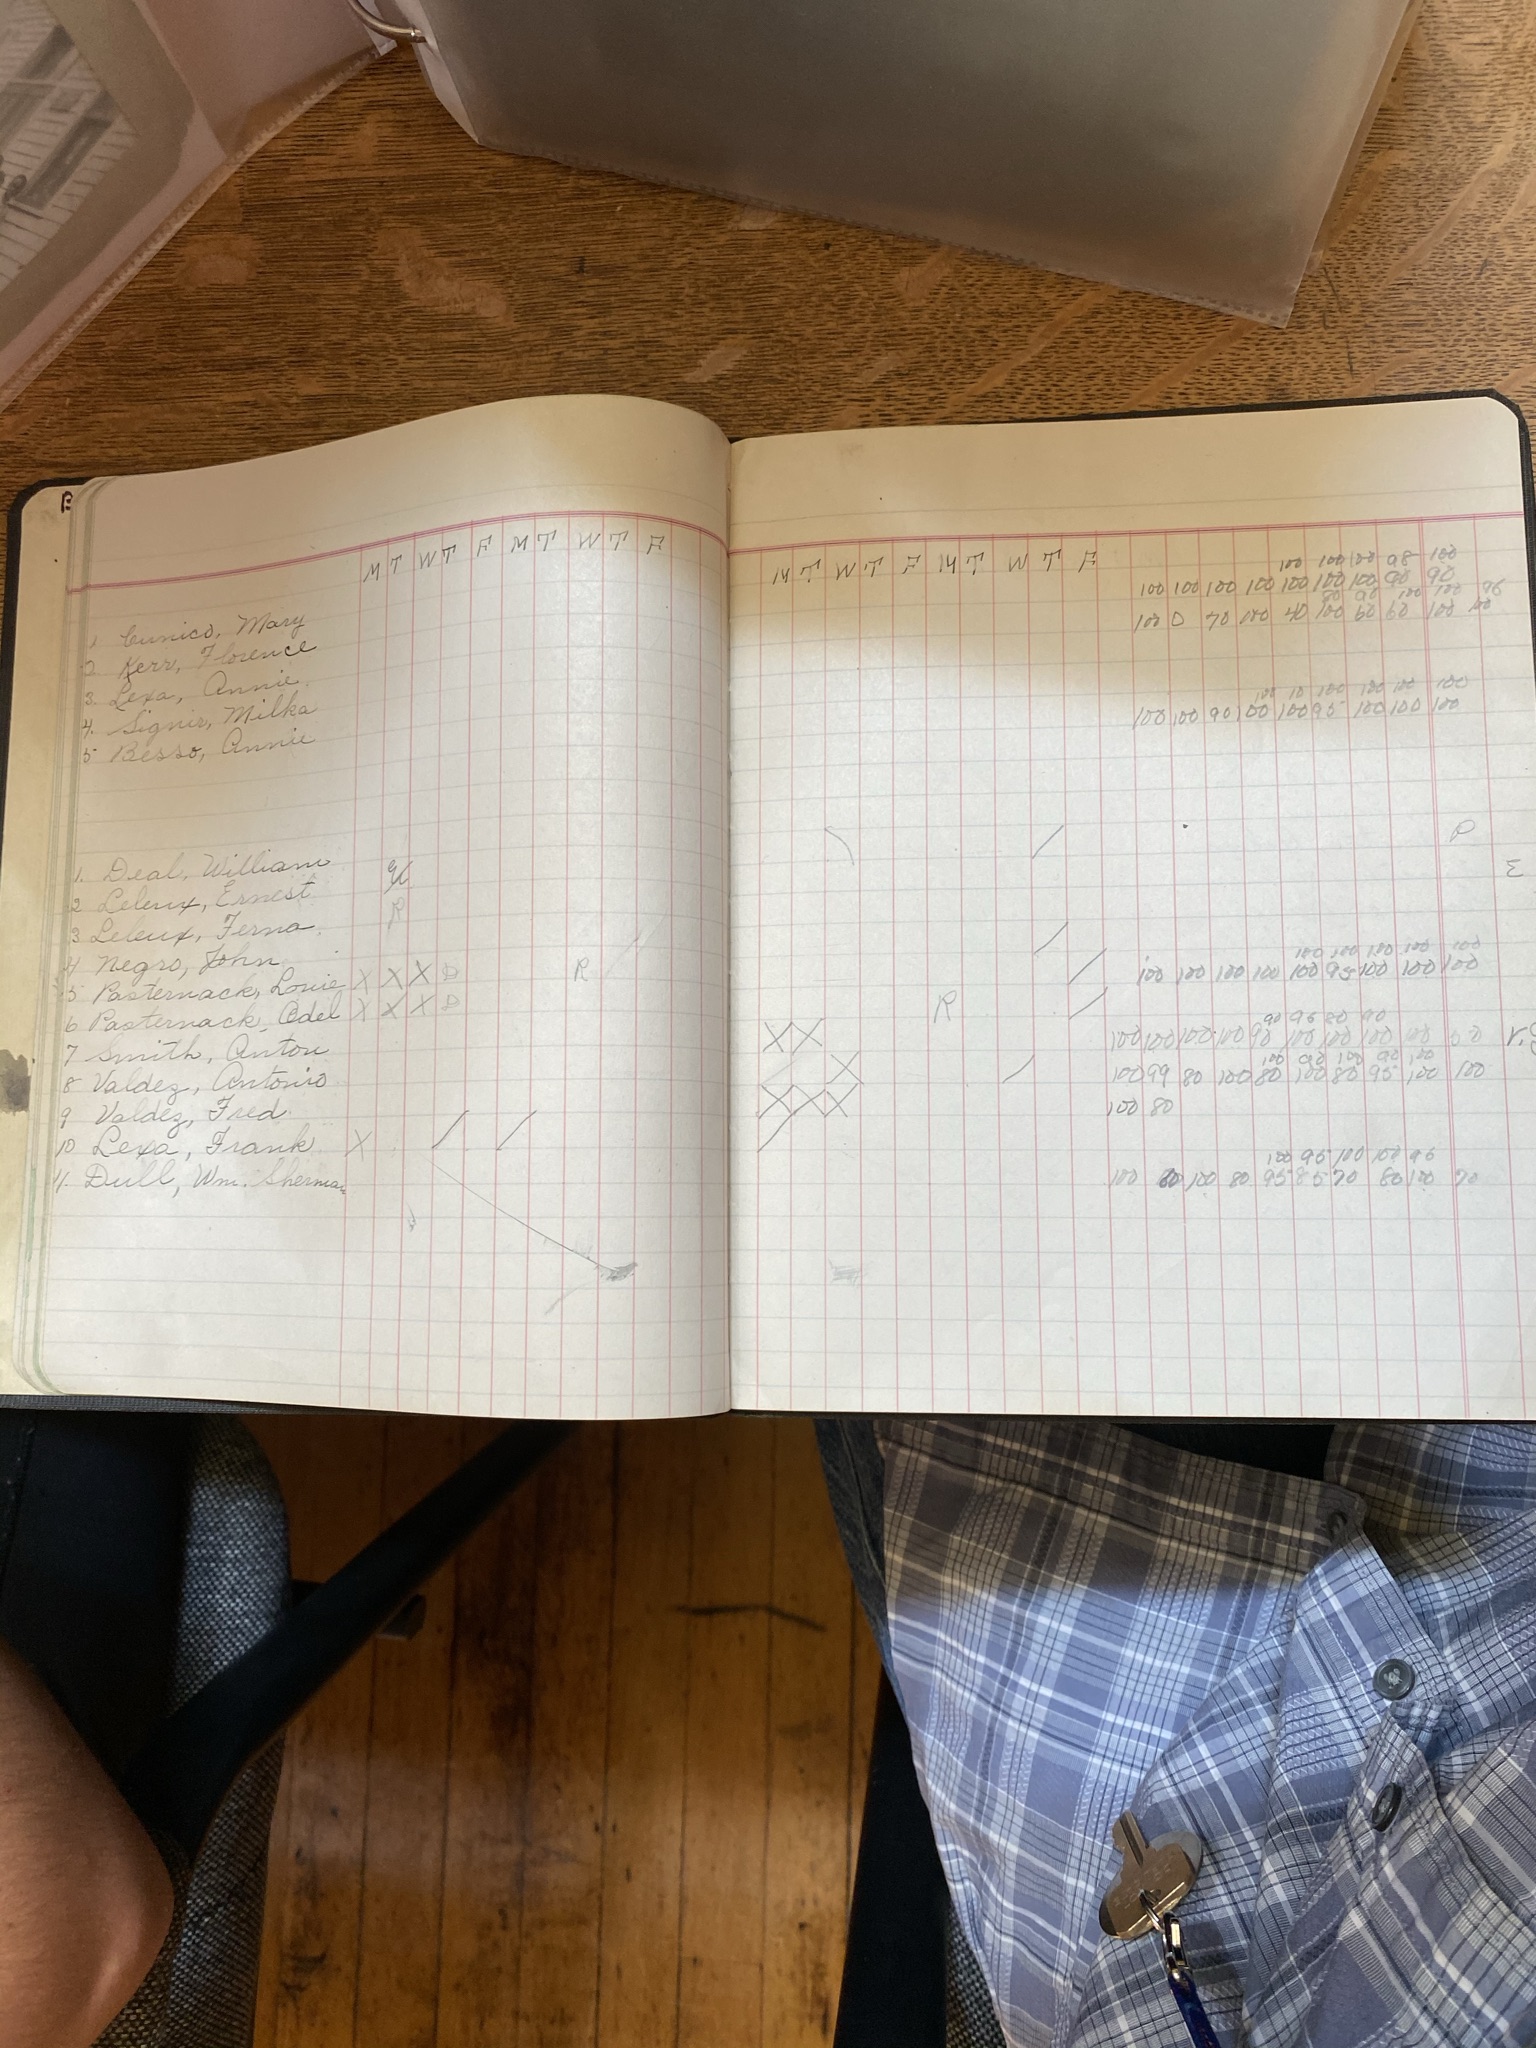 M T W T F M T W T F
1 Cunico, Mary
2 Kerr, Florence
3. Lexa, Annie
4. Signir, Milka
5 Besso, Annie
1. Deal, William
2 Leleux, Ernest
3 Leleux, Ferna R
4 Negro, John
5 Pasternack, Louie X X X D R
6 Pasternack, Odel X X X D
7 Smith, Anton
8 Valdez, Antonio
9 Valdez, Fred
10 Lexa, Frank X / /
11. Dull, Wm. Sherman
M T W T F M T W T F
100 100 100 98 100
100 100 100 100 100 100 100 90 90
80 90 100 100 96
100 0 70 100 40 100 60 60 100 100
100 10 100 100 100 100
100 100 90 100 100 95 100 100 100
\ / P
E
/
100 100 100 100 100
/ 100 100 100 100 100 95 100 100 100
R /
90 96 80 90
X X 100 100 100 100 90 100 100 100 100
100 90 100 90 100
X / 100 99 80 100 80 100 80 95 100 100
X X X 100 80
/
100 95 100 100 96
100 80 100 80 95 85 70 80 100 70